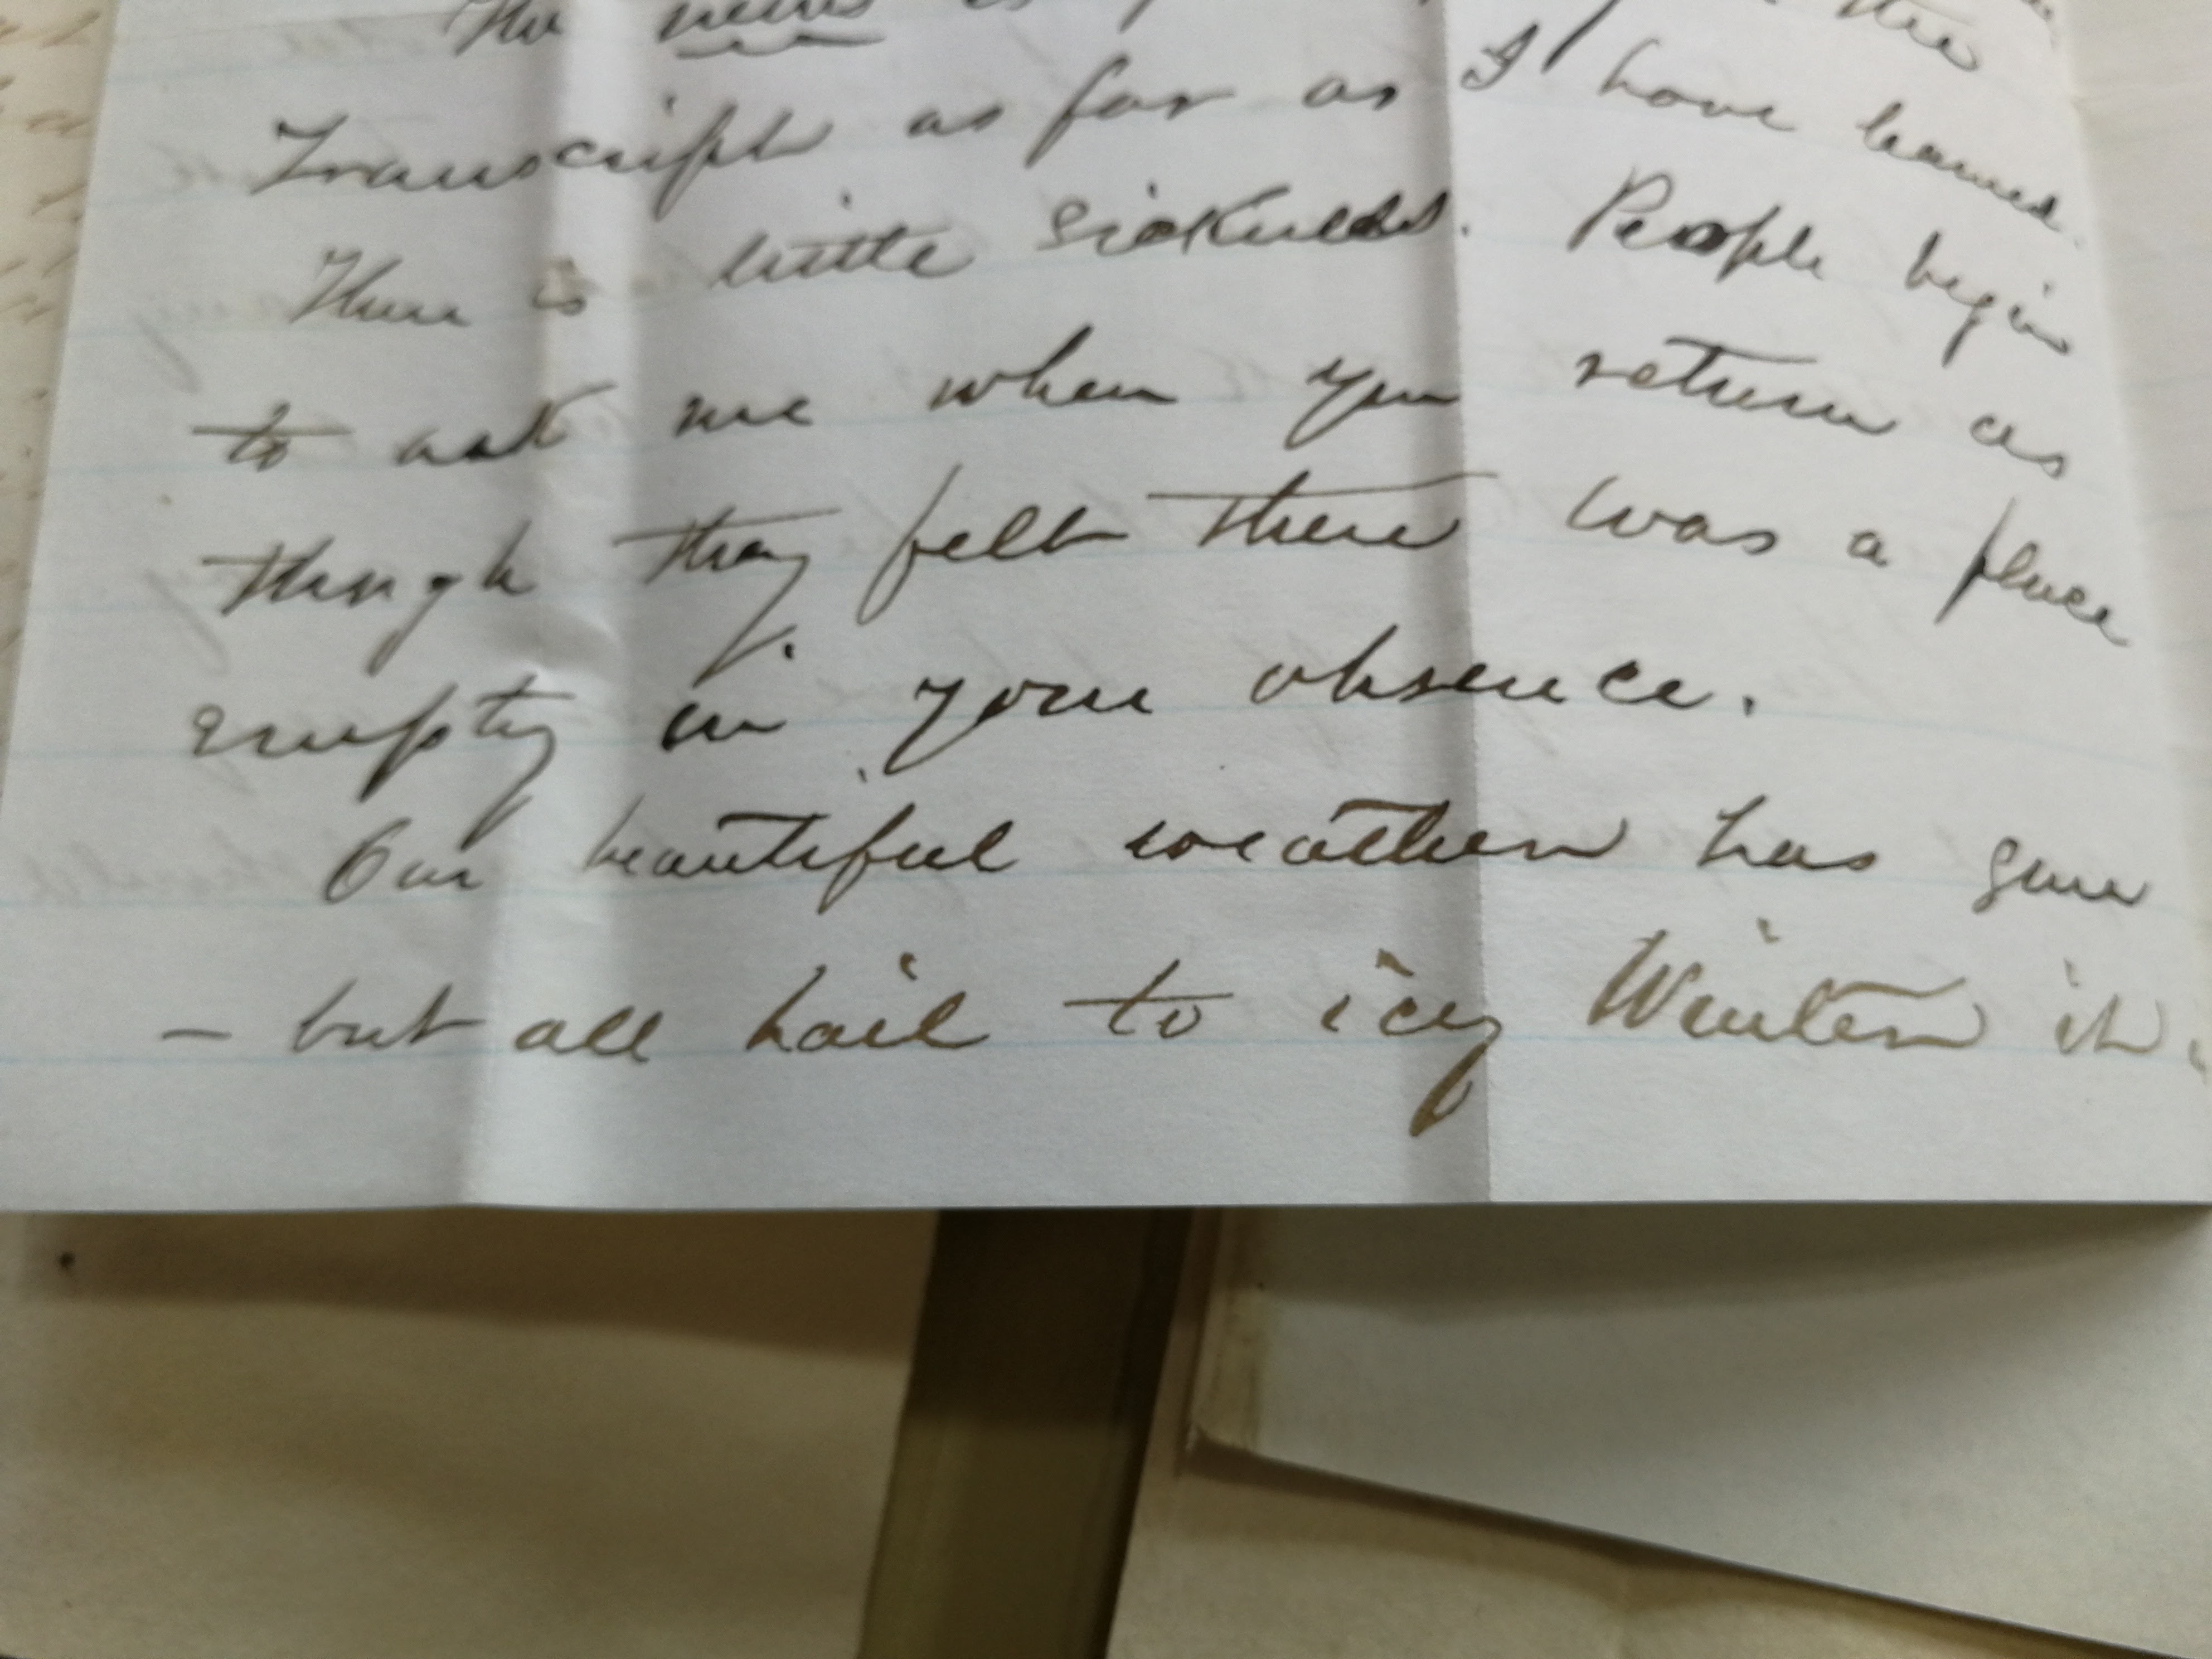 The news
the
Transcript as far as I have learned.
There is little sickness. People begin
to ask me when you return as
though they felt there was a place
empty in your absence.
Our beautiful weather has gone
– but all hail to icy Winter it